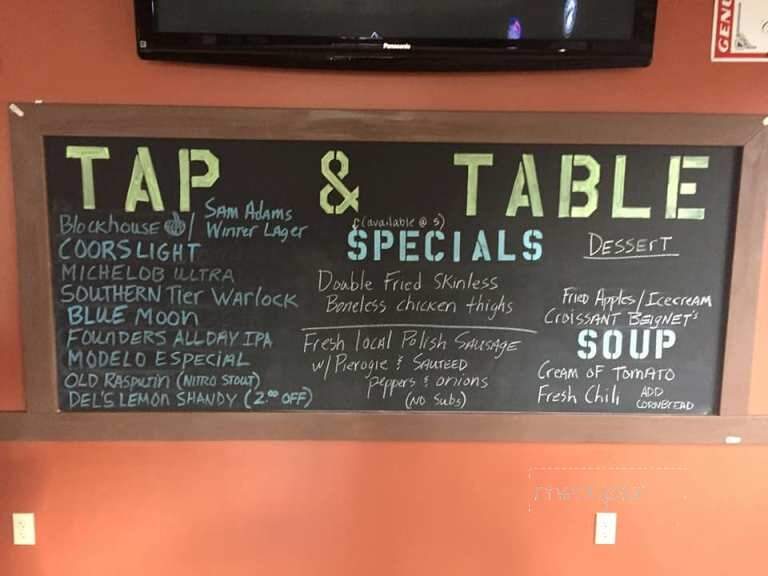 Panasonic
GENU
TAP & TABLE
Blockhouse / Sam Adams
Winter Lager
COORS LIGHT
MICHELOB ULTRA
SOUTHERN Tier Warlock
BLUE Moon
FOUNDERS ALL DAY IPA
MODELO ESPECIAL
OLD RASPUTIN (NITRO STOUT)
DEL'S LEMON SHANDY (2.00 OFF)
(available @ 5)
SPECIALS
Double Fried Skinless
Boneless chicken thighs
Fresh local Polish Sausage
w/ Pierogie & SAUTEED
peppers & onions
(NO Subs)
DESSERT
Fried Apples/Icecream
Croissant Beignet's
SOUP
Cream of TOMATO
Fresh Chili ADD
CORNBREAD